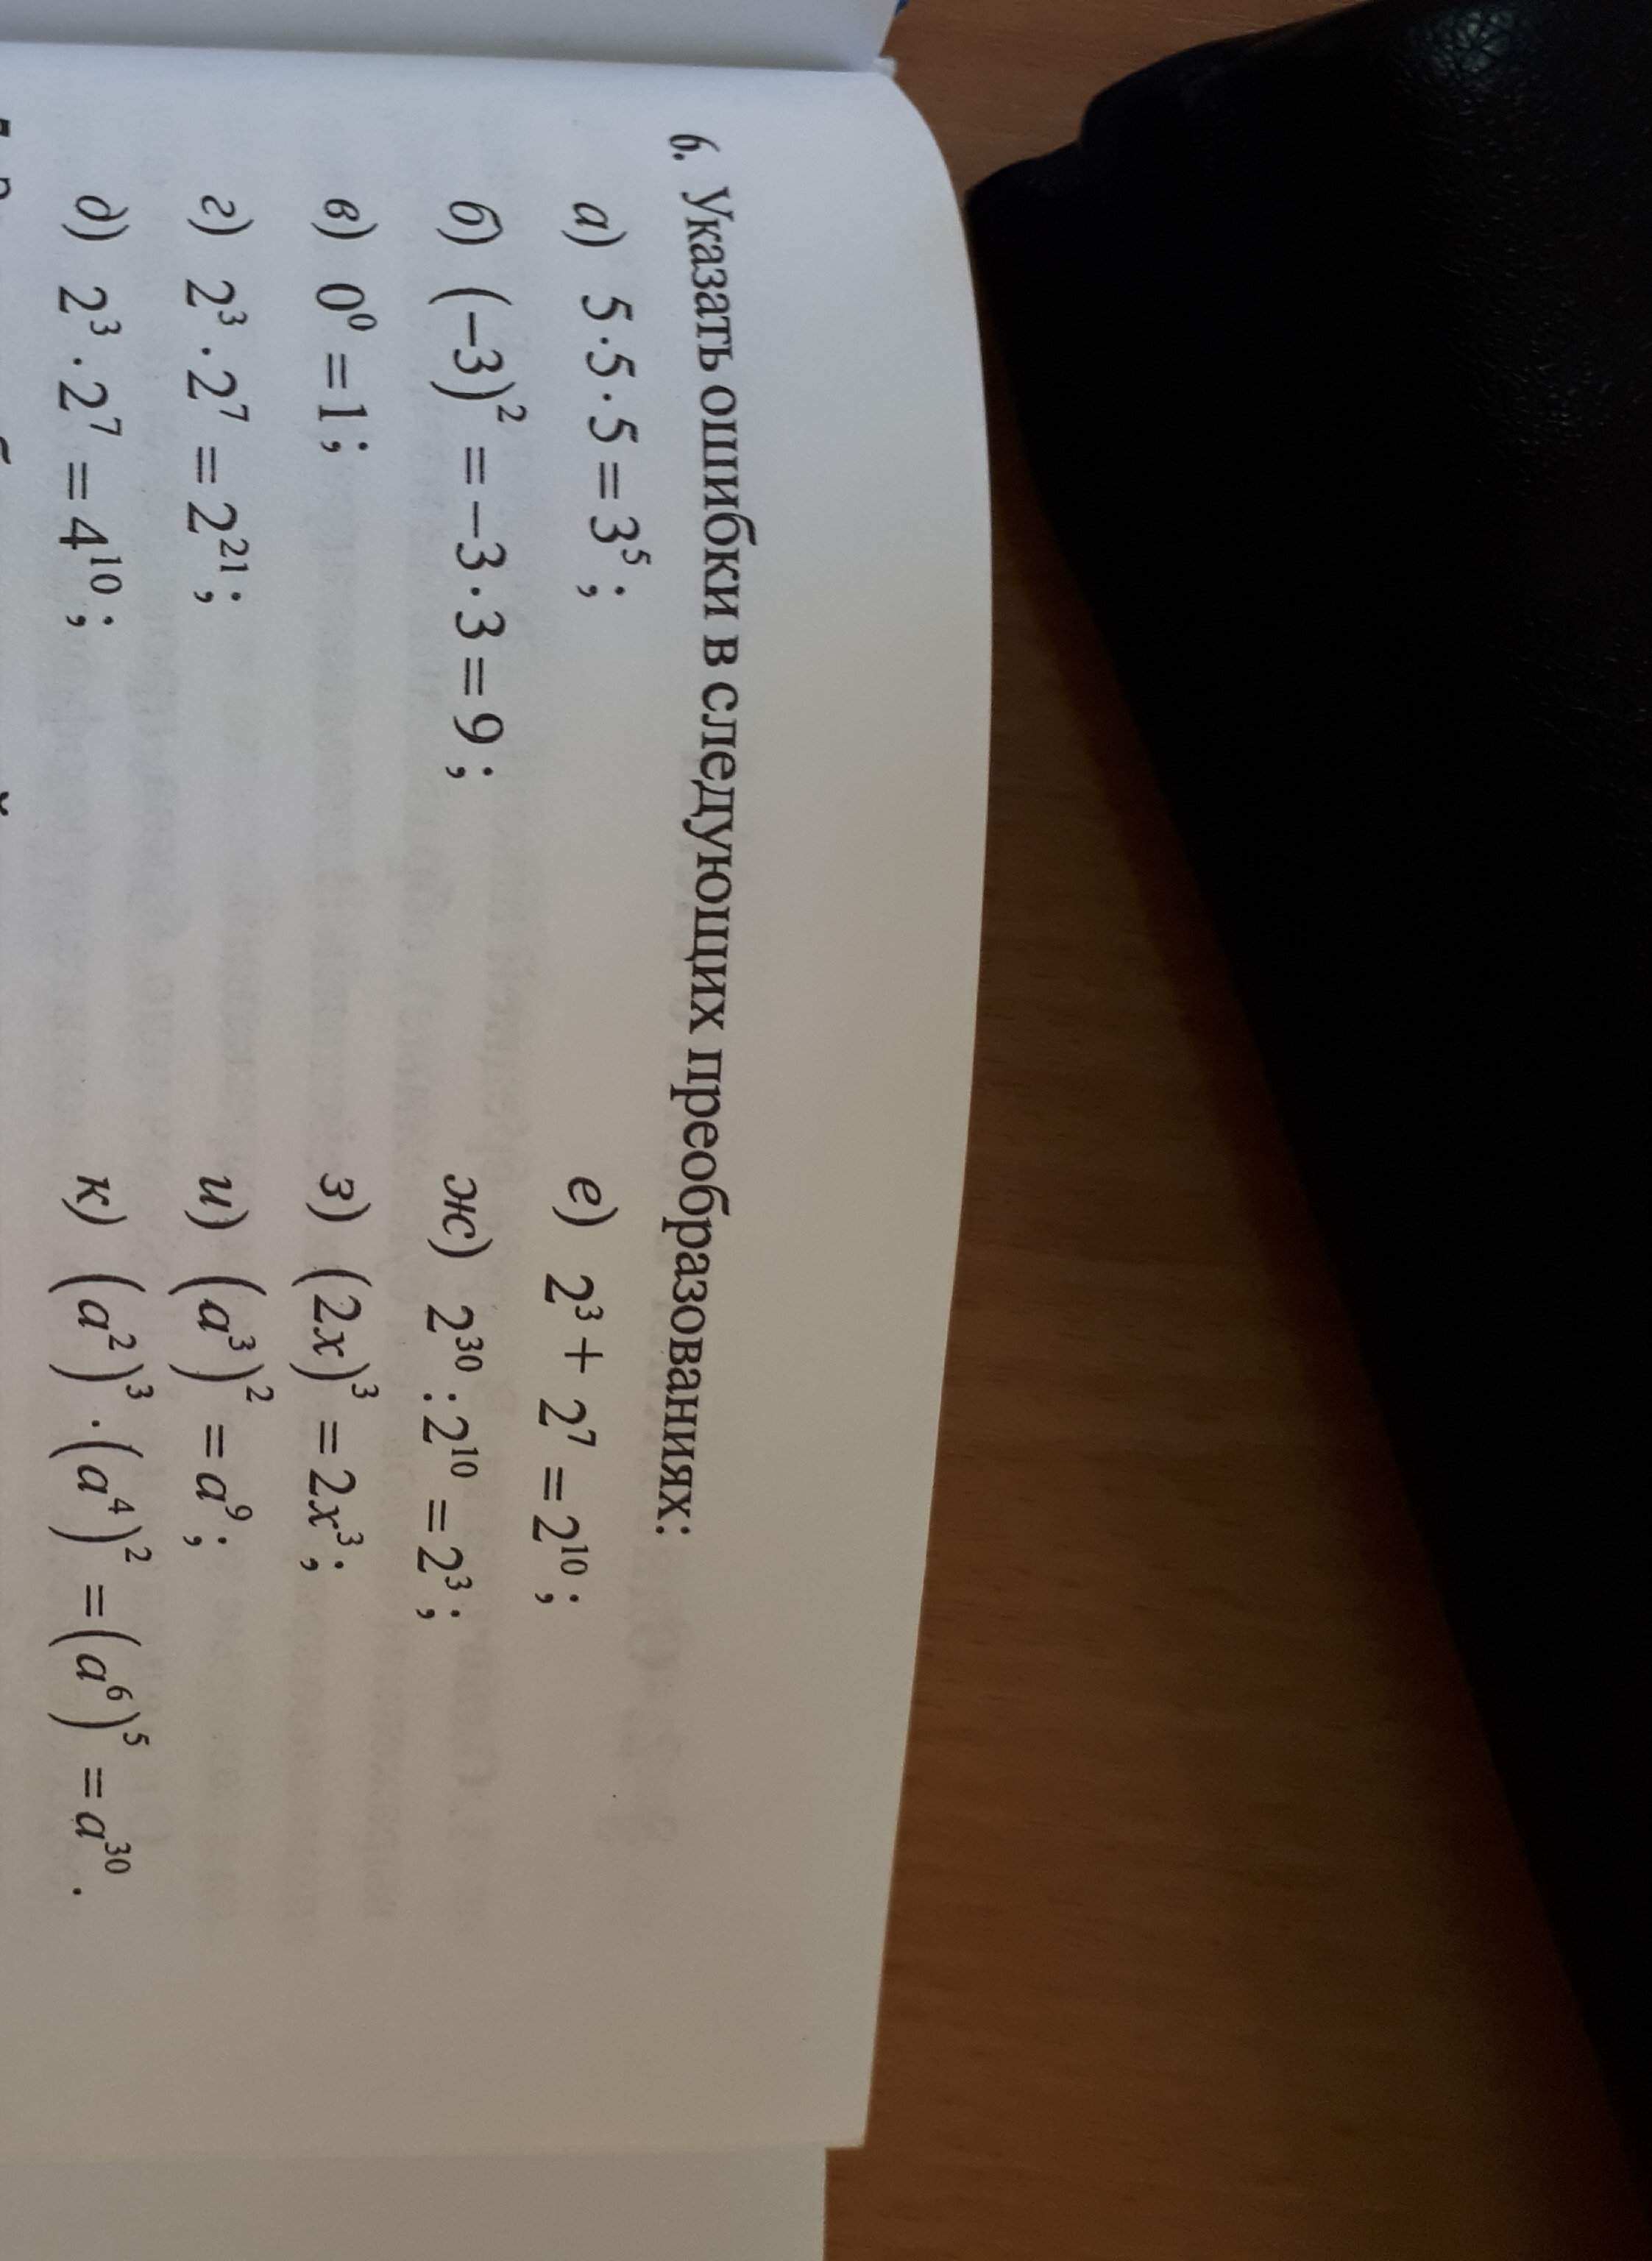 6. Указать ошибки в следующих преобразованиях:
а) 5·5·5=3⁵;
б) (−3)²=−3·3=9;
в) 0⁰=1;
г) 2³·2⁷=2²¹;
д) 2³·2⁷=4¹⁰;
е) 2³+2⁷=2¹⁰;
ж) 2³⁰:2¹⁰=2³;
з) (2x)³=2x³;
и) (a³)²=a⁹;
к) (a²)³·(a⁴)²=(a⁶)⁵=a³⁰.